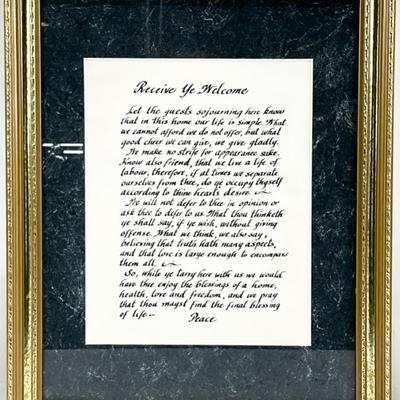 Receive Ye Welcome
Let the guests sojourning here know
that in this home our life is simple. What
we cannot afford we do not offer, but what
good cheer we can give, we give gladly.
We make no strife for appearance sake.
Know also friend, that we live a life of
labour, therefore, if at times we separate
ourselves from thee, do ye occupy thyself
according to thine heart's desire
We will not defer to thee in opinion or
ask thee to defer to us. What thou thinketh
ye shall say, if ye wish, without giving
offense. What we think, we also say,
believing that truth hath many aspects,
and that love is large enough to encompass
them all.
So, while ye tarry here with us we would
have thee enjoy the blessings of a home,
health, love and freedom, and we pray
that thou mayst find the final blessing
of life— Peace